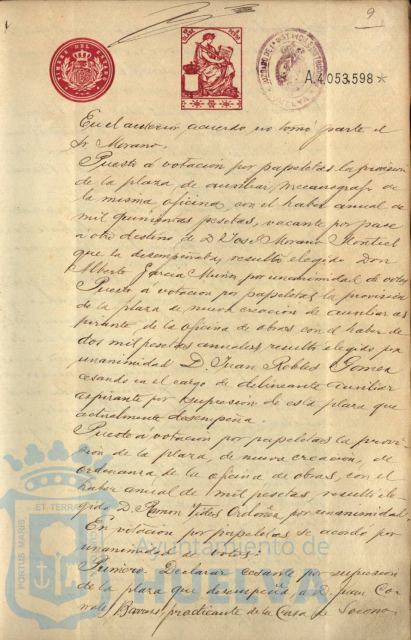 9
TIMBRE DEL ESTADO
HUELVA
A.4.053.598*
En el anterior acuerdo no tomó parte el
Sr Morano.
Puesto á votación por papeletas la provision
de la plaza de auxiliar, mecanografo de
la misma oficina, con el haber anual de
mil quinientas pesetas, vacante por pase
á otro destino de D. José Morano Montiel
que la desempeñaba, resultó elegido Don
Alberto Garcia Muñoz por unanimidad de votos
Puesto á votación por papeletas la provisión
de la plaza de nueva creación de auxiliar as
pirante, de la oficina de obras con el haber de
dos mil pesetas anuales, resultó elegido por
unanimidad D. Juan Robles Gomez
cesando en el cargo de delineante auxiliar
aspirante por supresion de esta plaza que
actualmente desempeña.
Puesto á votación por papeletas la provi
sion de la plaza, de nueva creación, de
ordenanza de la oficina de obras, con el
haber anual de mil pesetas, resultó ele
gido D. Ramon Vides Ordoñez por unanimidad
En votacion por papeletas se acordó por
unanimidad de votos:
Primero. Declarar cesante por supresion
de la plaza que desempeña, a D. Juan
practicante de la Casa de Socorro
PORTUS MARIS ET TERRAE CUSTODIA
Ayuntamiento de
HUELVA